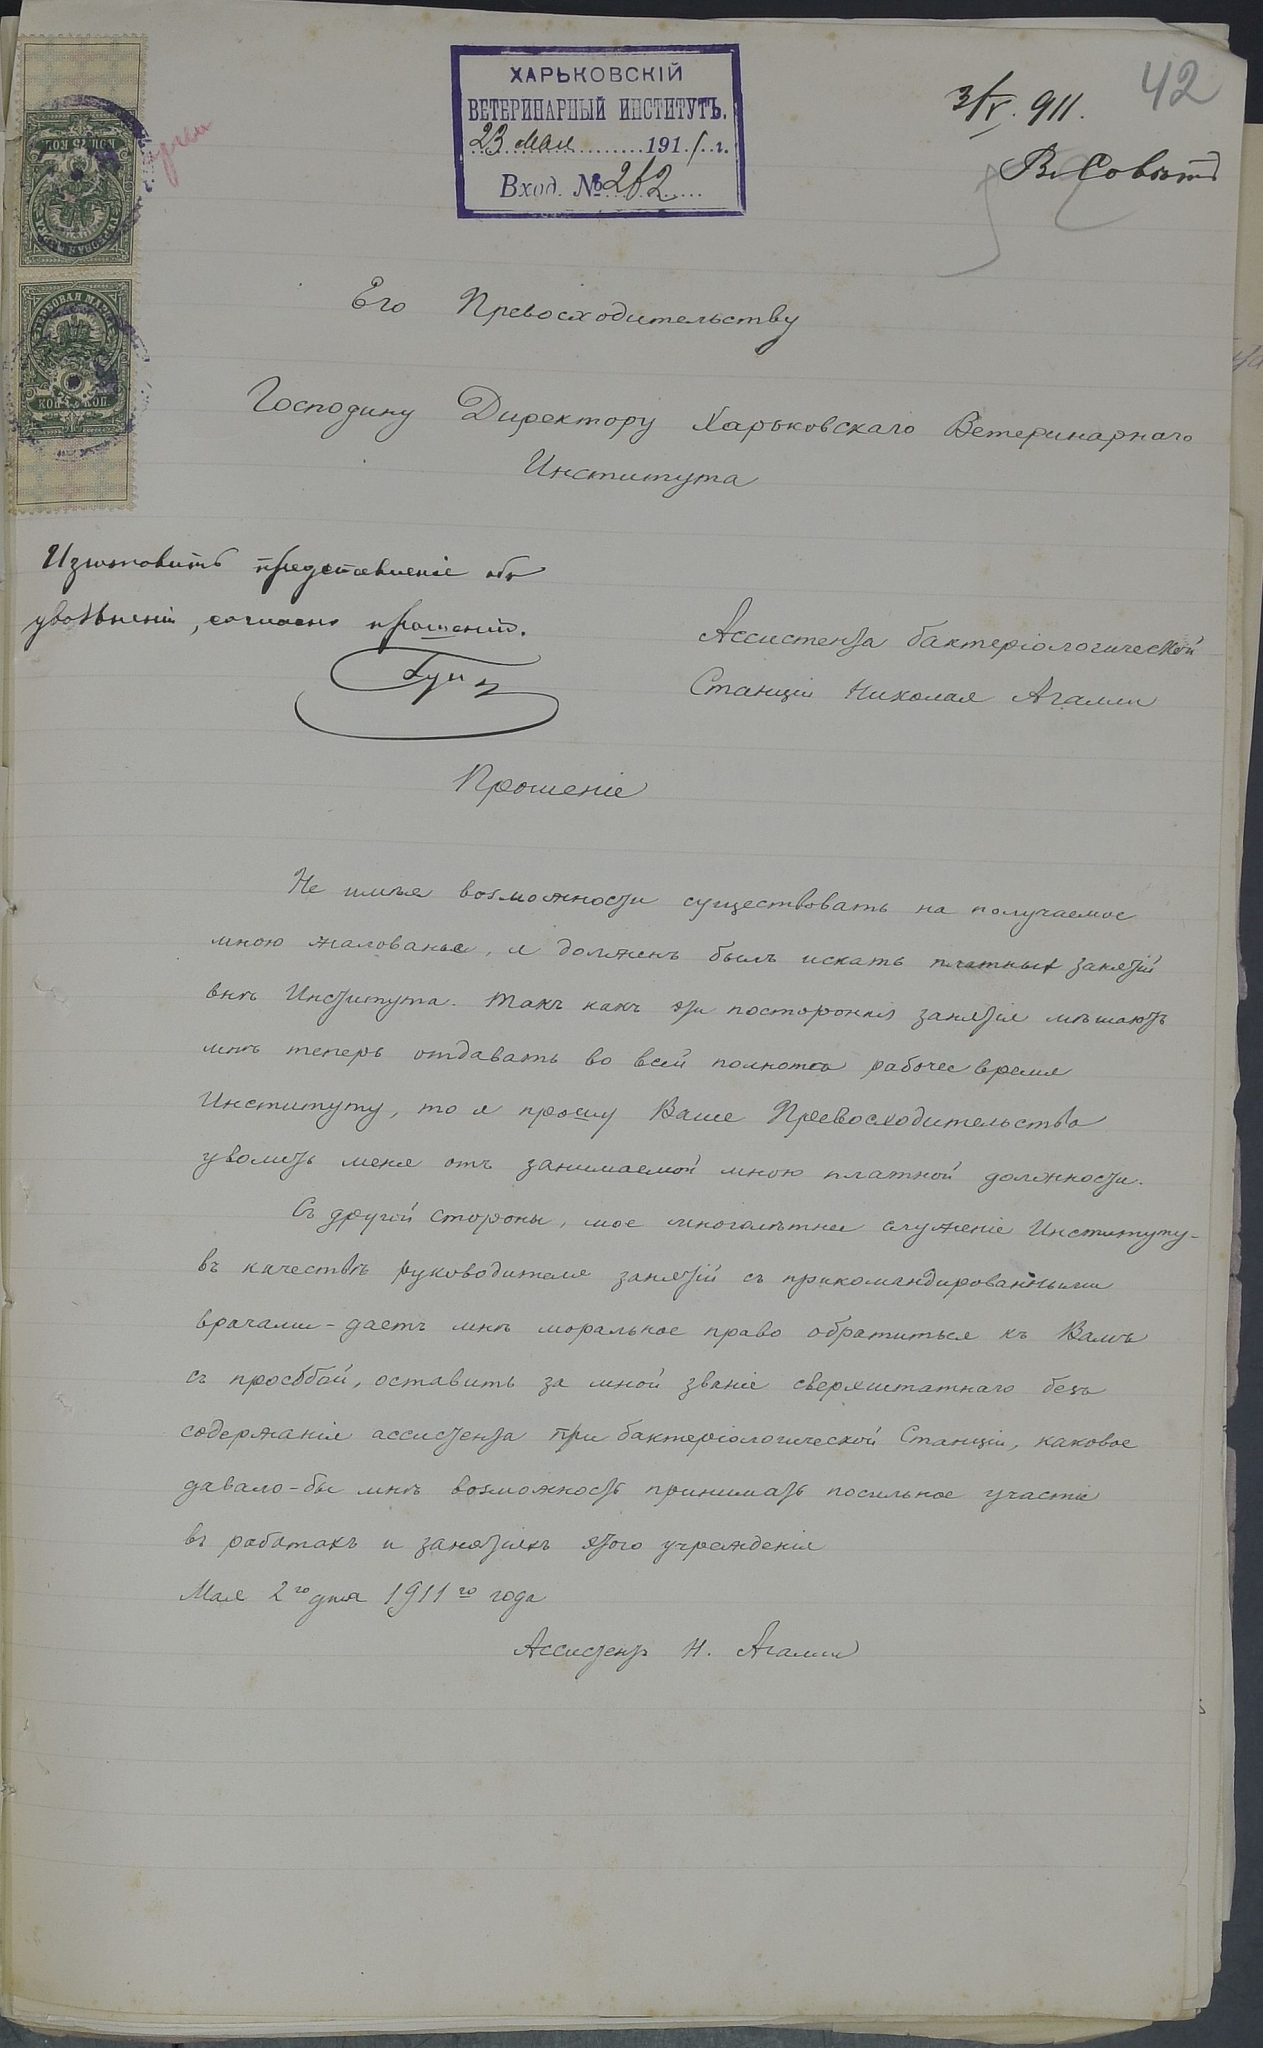 42
3/V. 911.
Въ Совѣтъ
ХАРЬКОВСКІЙ
ВЕТЕРИНАРНЫЙ ИНСТИТУТЪ.
23 мая 1911 г.
Вход. №
ГЕРБОВАЯ МАРКА
Его Превосходительству
Господину Директору Харьковскаго Ветеринарнаго
Института
Изготовить представленіе объ
увольненіи, согласно прошенію.
Ассистента бактеріологической
Станціи Николая Агалли
Прошеніе
Не имѣя возможности существовать на получаемое
мною жалованье, я долженъ былъ искать платныхъ занятій
внѣ Института. Такъ какъ эти постороннія занятія мѣшаютъ
мнѣ теперь отдавать во всей полнотѣ рабочее время
Институту, то я прошу Ваше Превосходительство
уволить меня отъ занимаемой мною платной должности.
Съ другой стороны, мое многолѣтнее служеніе Институту -
въ качествѣ руководителя занятій съ прикомандированными
врачами - даетъ мнѣ моральное право обратиться къ Вамъ
съ просьбой, оставить за мной званіе сверхштатнаго безъ
содержанія ассистента при бактеріологической Станціи, каковое
давало-бы мнѣ возможность принимать посильное участіе
въ работахъ и занятіяхъ этого учрежденія
Мая 2го дня 1911го года
Ассистентъ Н. Агалли